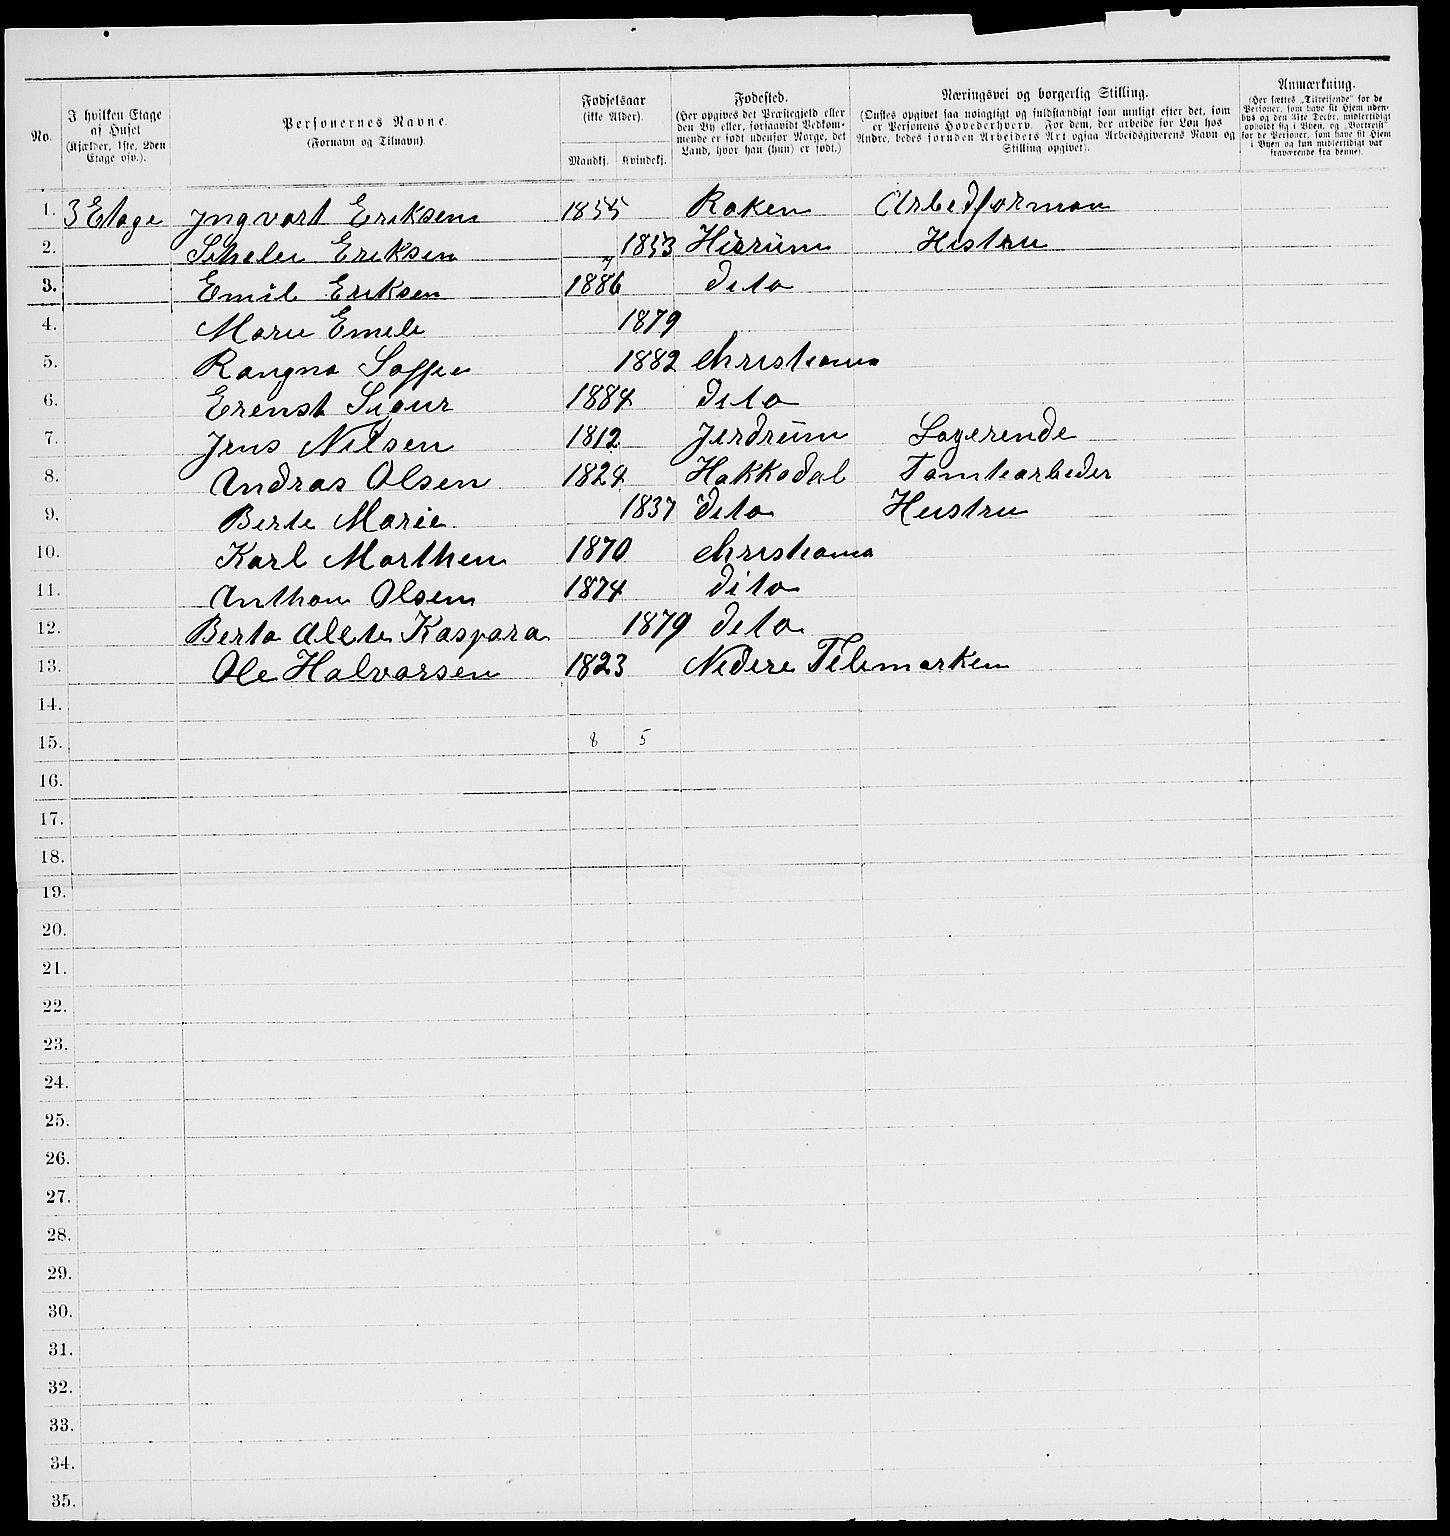 No.
I hvilken Etage af Huset (Kjælder, 1ste, 2den Etage osv.).
Personernes Navne. (Fornavn og Tilnavn)
Fødselsaar (ikke Alder). Mandkj. Kvindekj.
Fødested. (Her opgives det Præstegjeld eller den By eller, forsaavidt Vedkommende er født udenfor Norge, det Land, hvor han (hun) er født.)
Næringsvei og borgerlig Stilling. (Ønskes opgivet saa nøiagtigt og fuldstændigt som muligt efter det, som er Personens Hovederhverv. For dem, der arbeide for Løn hos Andre, bedes foruden Arbeidets Art ogsaa Arbeidsgiverens Navn og Stilling opgivet).
Anmærkning. (Her sættes „Tilreisende" for de Personer, som have sit Hjem udenbys og den 31te Decbr. midlertidigt opholdt sig i Byen, og „Bortreist" for de Personer, som have sit Hjem i Byen og kun midlertidigt var fraværende fra denne).
1. 3 Etage Jngvart Eriksen 1855 Røken Arbedformon
2. Eriksen 1853 Histru
3. Emil Eriksen 1886 Deto
4. Marie Emele 1879
5. Rangna Soffie 1882 Christiania
6. Erenst Sigur 1884 Deto
7. Jens Nilsen 1812 Jerdrum Logerende
8. Andras Olsen 1824 Hakkadal Tomtearbeder
9. Berte Marie 1837 Deto Hustru
10. Karl Marthen 1870 Christiania
11. Anthon Olsen 1874 Dito
12. Berta Alete Kaspara 1879 Deto
13. Ole Halvorsen 1823 Nedere Telemarken
14.
15. 8 5
16.
17.
18.
19.
20.
21.
22.
23.
24.
25.
26.
27.
28.
29.
30.
31.
32.
33.
34.
35.